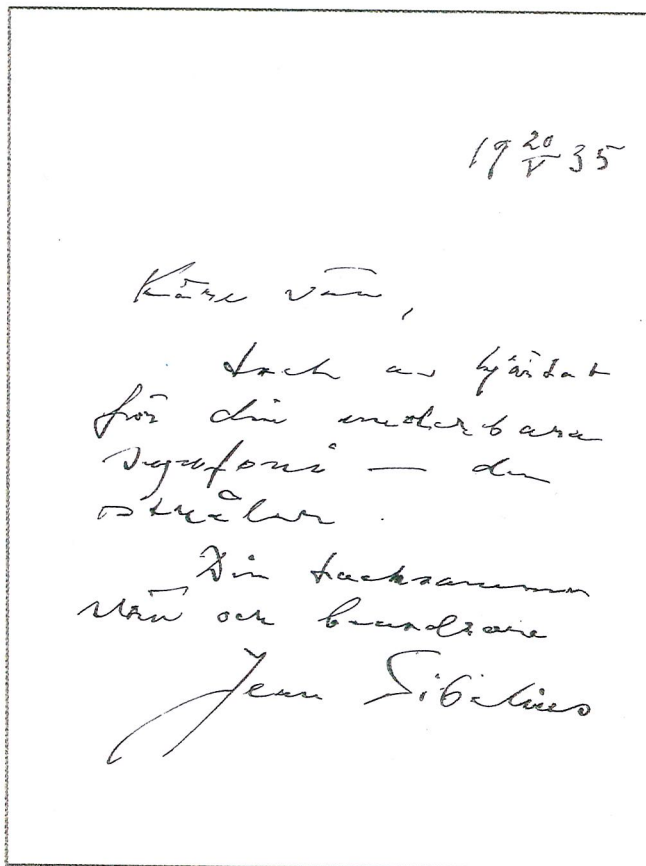 19 20/V 35
Käre vän,
tack av hjärtat
för din underbara
symfoni — den
strålar.
Din tacksamme
vän och beundrare
Jean Sibelius